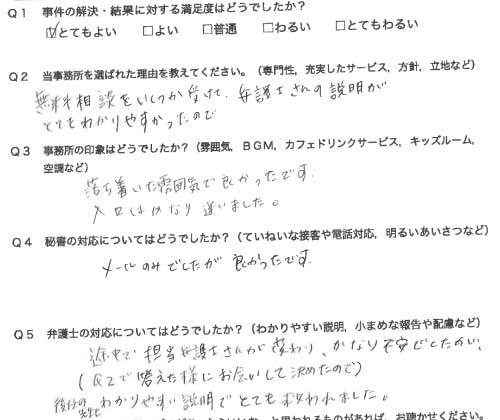 Q1 事件の解決・結果に対する満足度はどうでしたか？
☑とてもよい □よい □普通 □わるい □とてもわるい
Q2 当事務所を選ばれた理由を教えてください。（専門性，充実したサービス，方針，立地など）
無料相談をいくつか受けて、弁護士さんの説明が
とてもわかりやすかったので
Q3 事務所の印象はどうでしたか？（雰囲気，ＢＧＭ，カフェドリンクサービス，キッズルーム，
空調など）
落ち着いた雰囲気で良かったです．
入口はかなり迷いました。
Q4 秘書の対応についてはどうでしたか？（ていねいな接客や電話対応，明るいあいさつなど）
メールのみでしたが 良かったです．
Q5 弁護士の対応についてはどうでしたか？（わかりやすい説明，小まめな報告や配慮など）
途中で担当弁護士さんが変わり、かなり不安でしたが、
（Q2で答えた様にお会いして決めたので）
後任の先生もわかりやすい説明でとても救われました。
と思われるものがあれば，お聴かせください。